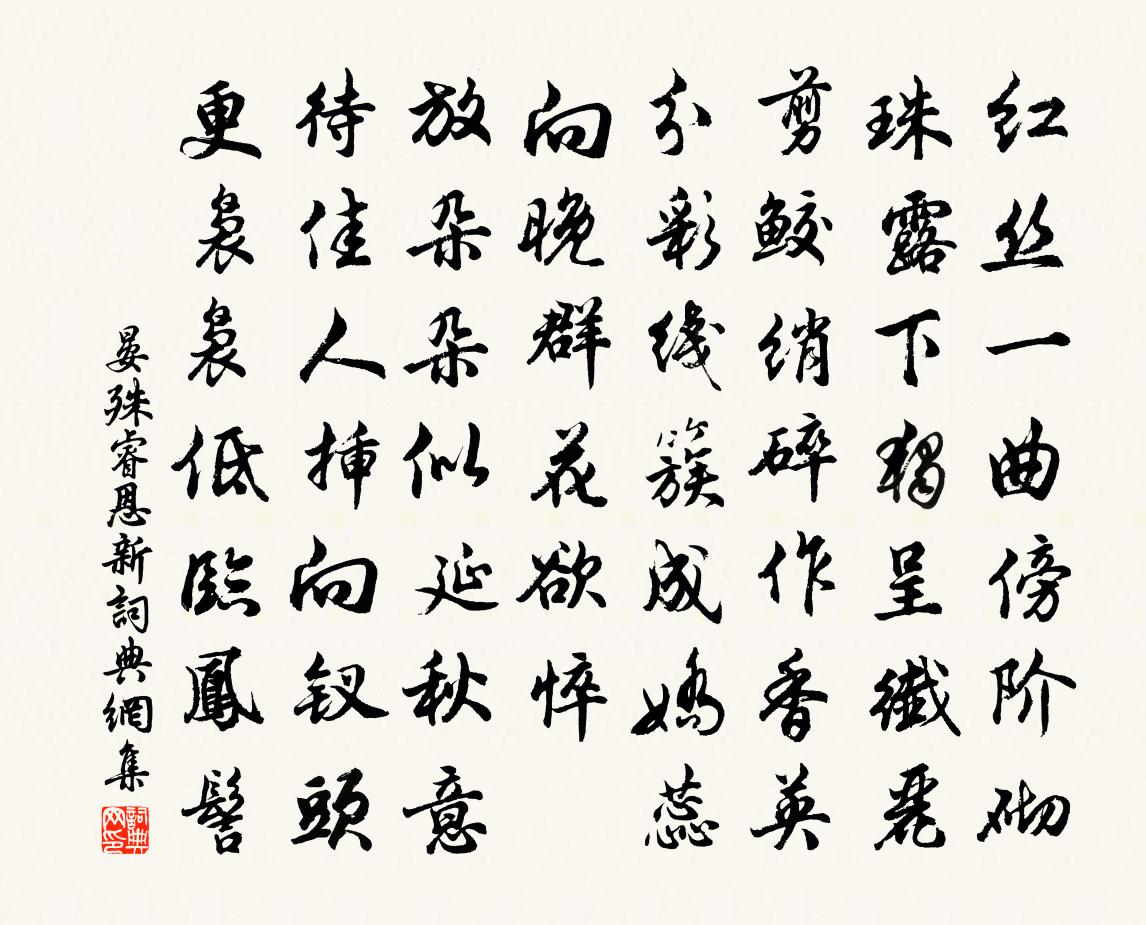 红丝一曲傍阶砌
珠露下獨呈纖麗
剪鲛绡碎作香英
分彩线簇成娇蕊
向晚群花欲悴
放朵朵似延秋意
待佳人插向钗頭
更袅袅低臨鳳髻
晏殊睿恩新詞典網集
詞典网印